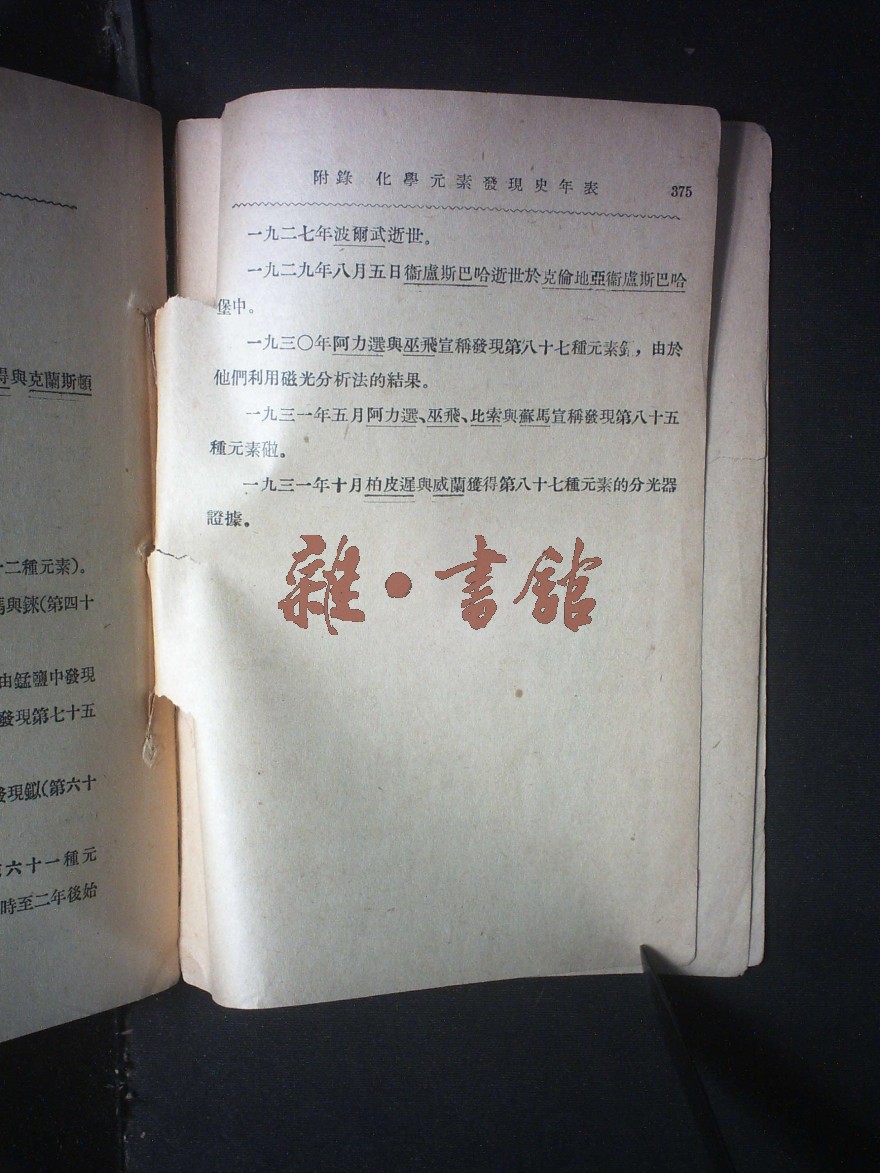 得與克蘭斯頓
十二種元素)。
馬與銤(第四十
由錳鹽中發現
發現第七十五
發現鉯(第六十
六十一種元
時至二年後始
附錄 化學元素發現史年表 375
一九二七年波爾武逝世。
一九二九年八月五日衞盧斯巴哈逝世於克倫地亞衞盧斯巴哈
堡中。
一九三〇年阿力選與巫飛宣稱發現第八十七種元素,由於
他們利用磁光分析法的結果。
一九三一年五月阿力選、巫飛、比索與蘇馬宣稱發現第八十五
種元素砬。
一九三一年十月柏皮遲與威蘭獲得第八十七種元素的分光器
證據。
雜·書館